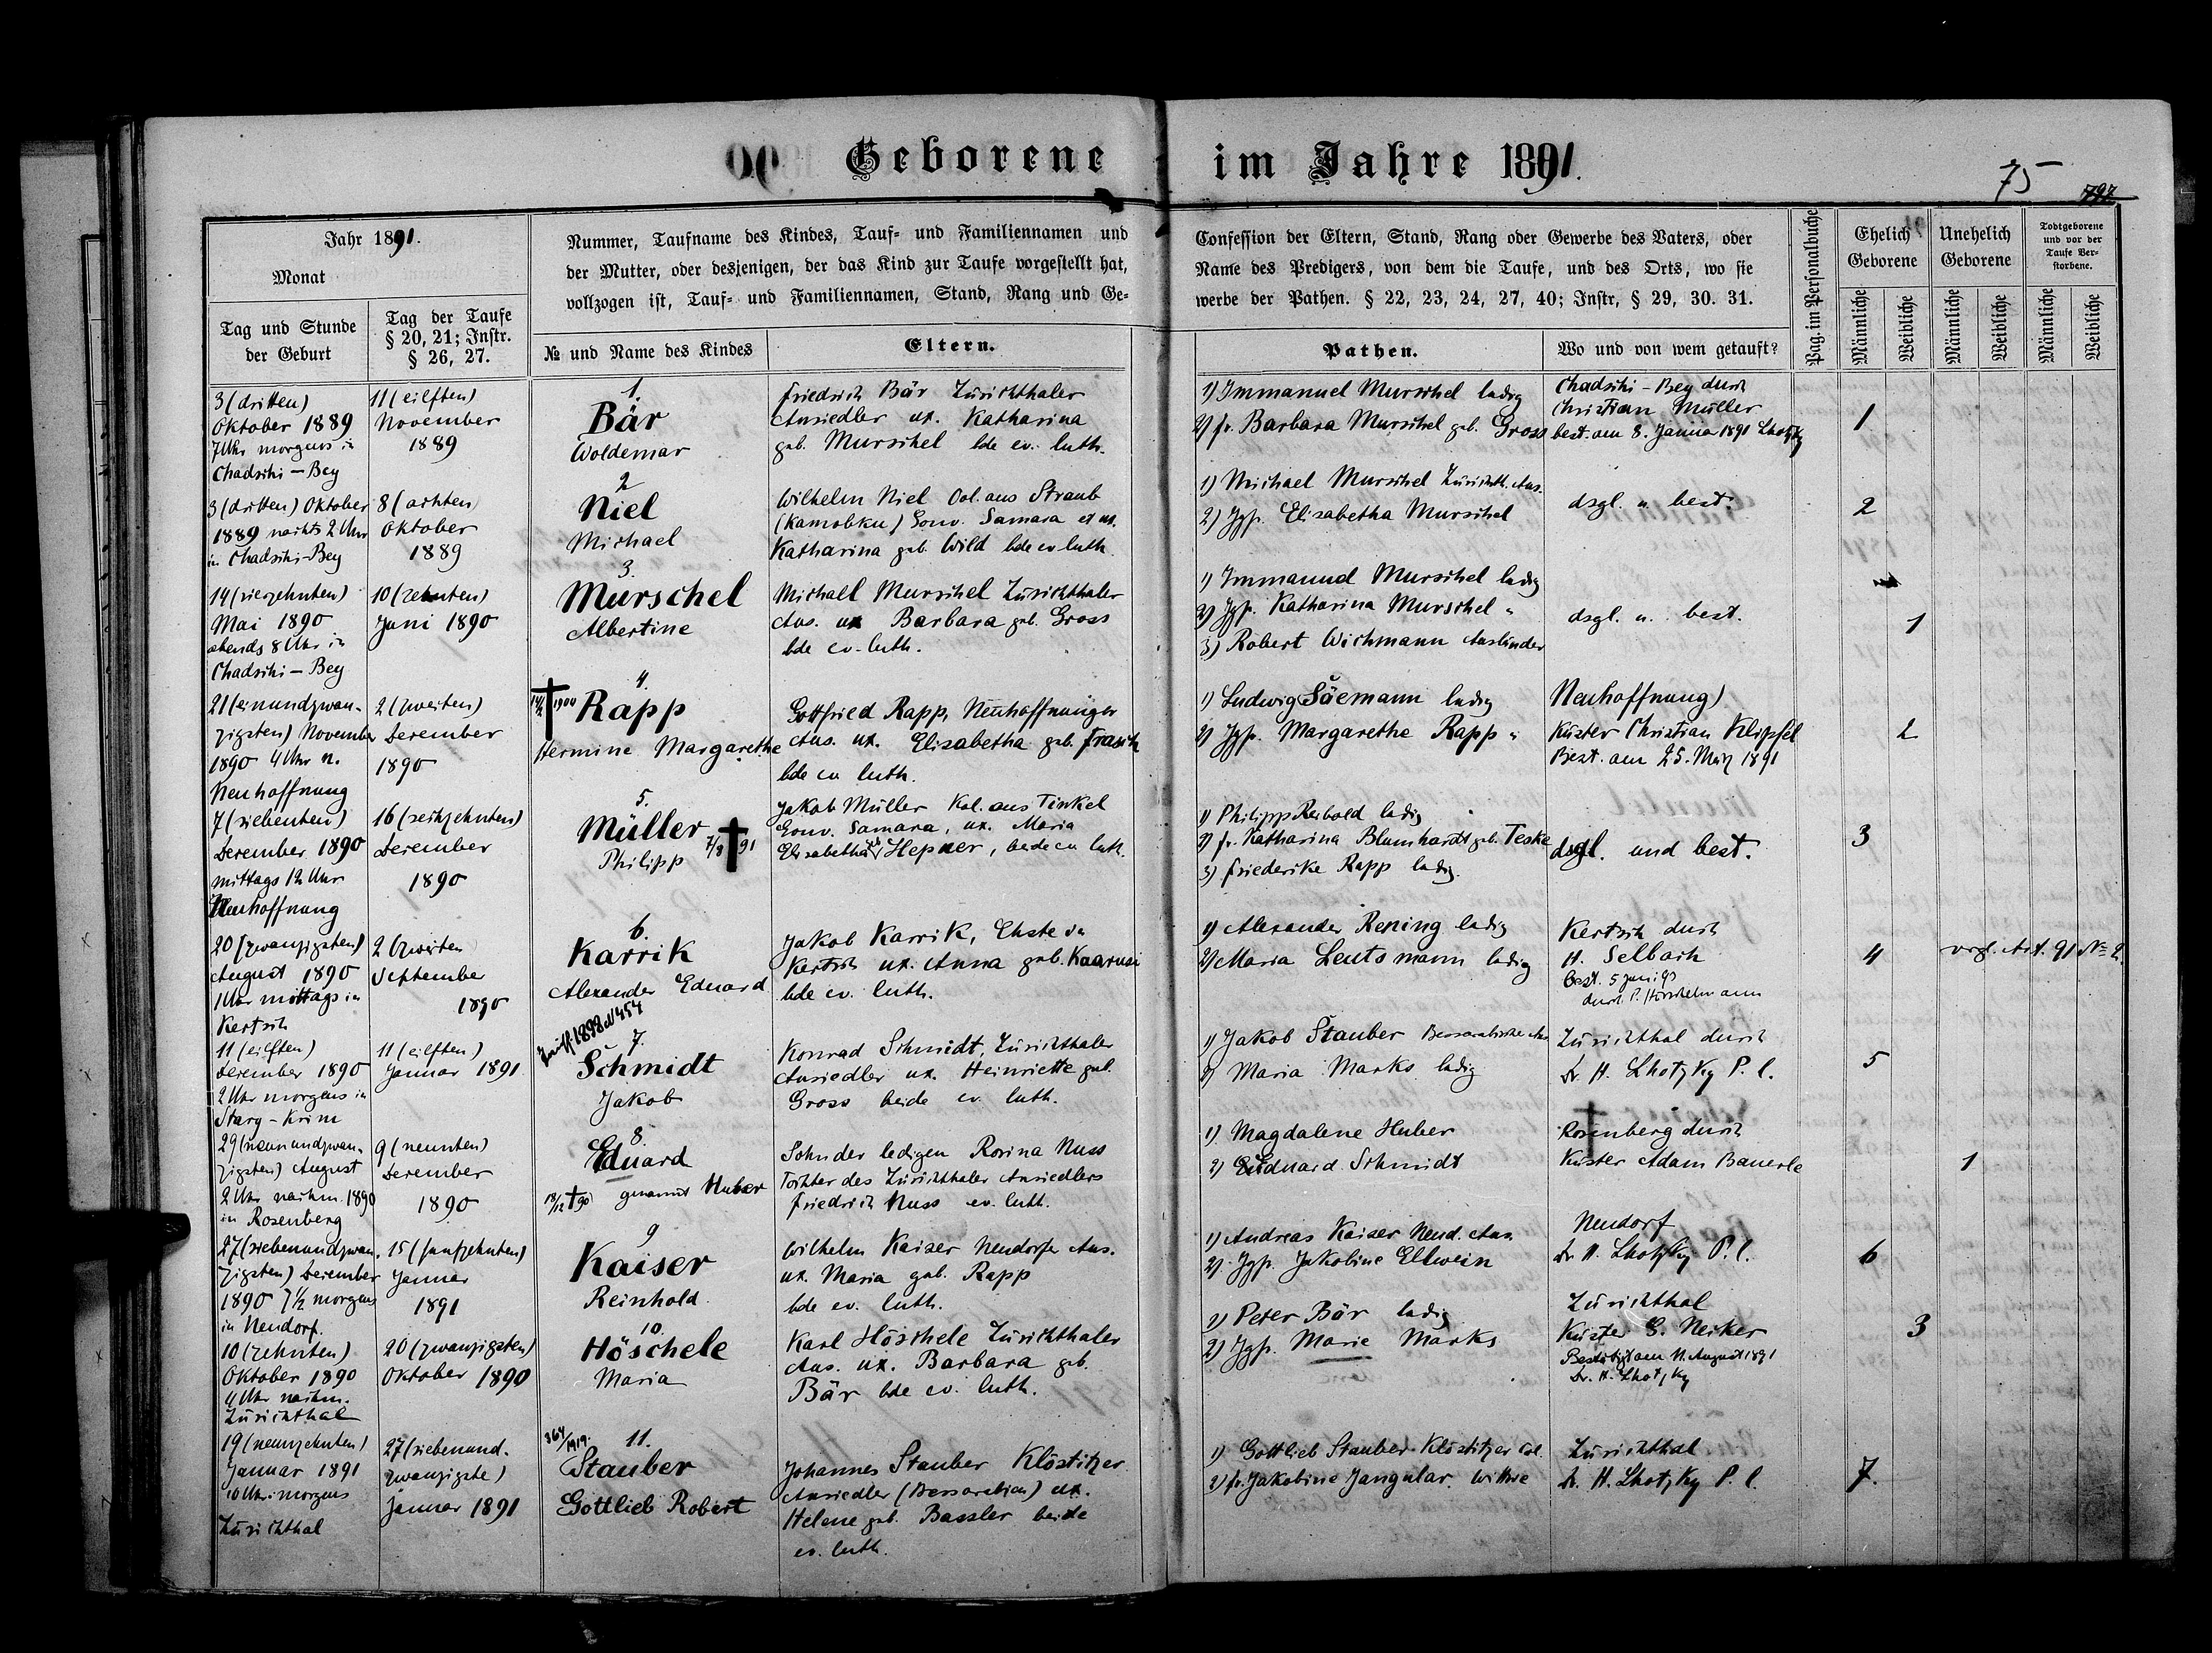 Geborene im Jahre 1891.
75
Jahr 1891.
Monat
Tag und Stunde
der Geburt
Tag der Taufe
§ 20, 21; Instr.
§ 26, 27.
Nummer, Taufname des Kindes, Tauf- und Familiennamen und
der Mutter, oder desjenigen, der das Kind zur Taufe vorgestellt hat,
vollzogen ist, Tauf- und Familiennamen, Stand, Rang und Ge-
№ und Name des Kindes
Eltern.
Confession der Eltern, Stand, Rang oder Gewerbe des Vaters, oder
Name des Predigers, von dem die Taufe, und des Orts, wo sie
werbe der Pathen. § 22, 23, 24, 27, 40; Instr, § 29, 30. 31.
Pathen.
Wo und von wem getauft?
Pag. im Personalbuche
Ehelich
Geborene
Unehelich
Geborene
Todtgeborene
und vor der
Taufe Ver-
storbene.
Männliche
Weibliche
Männliche
Weibliche
Männliche
Weibliche
3 (dritten)
Oktober 1889
7 Uhr morgens in
Chadschi-Bey
11 (eilften)
November
1889
1.
Bär
Woldemar
Friedrich Bär Zürichthaler
Ansiedler ux. Katharina
geb. Murschel bde ev. luth.
1) Immanuel Murschel ledig
2) fr. Barbara Murschel geb. Gross
Chadschi-Bey durch
Christian Müller
best. am 8. Januar 1891 Lhotzky
1
3 (dritten) Oktober
1889 nachts 2 Uhr
in Chadschi-Bey
8 (achten)
Oktober
1889
2
Niel
Michael
Wilhelm Niel Col. aus Straub
(Kamobku) Gouv. Samara et ux.
Katharina geb. Wild bde ev luth.
1) Michael Murschel Zürichtl. Ans.
2) Jgfr. Elisabetha Murschel
dsgl. u. best.
2
14 (vierzehnten)
Mai 1890
abends 8 Uhr in
Chadschi-Bey
10 (zehnten)
Juni 1890
3.
Murschel
Albertine
Michael Murschel Zürichthaler
Ans. ux Barbara geb. Gross
bde ev. luth.
1) Immanuel Murschel ledig
2) Jgfr. Katharina Murschel "
3) Robert Wichmann Ausländer
dsgl. u. best.
1
21 (einundzwan-
zigsten) November
1890 4 Uhr n.
Neuhoffnung
2 (zweiten)
Dezember
1890
4.
1900
Rapp
Hermine Margarethe
Gottfried Rapp, Neuhoffnunger
Ans. ux. Elisabetha geb. Frasch
bde ev luth.
1) Ludwig Säemann ledig
2) Jgfr. Margarethe Rapp "
Neuhoffnung)
Küster Christian Klipfel
Best. am 25. März 1891
2
7 (siebenten)
Dezember 1890
mittags 12 Uhr
Neuhoffnung
16 (sechzehnten)
Dezember
1890
5.
Müller
Philipp 7/8 91
Jakob Müller Kol. aus Tinkel
Gouv. Samara, ux. Maria
Elisabetha geb Hepner, beide ev luth.
1) Philipp Reibold ledig
2) fr. Katharina Blumhardt geb. Teske
3) Friederike Rapp ledig.
dsgl. und best.
3
20 (zwanzigsten)
August 1890
1 Uhr mittags in
Kertsch
2 (zweiten
September
1890
6.
Karrik
Alexander Eduard
Jakob Karrik, Ehste in
Kertsch ux. Anna geb. Kaarusi
bde ev. luth.
1) Alexander Rening ledig
2) Maria Leutsmann ledig
Kertsch durch
H. Selbach
best. 5 Juni 93
durch P. Hörschelmann
4
vrgl. Art. 91 № 2.
11 (eilften)
Dezember 1890
2 Uhr morgens in
Stary-Krim
11 (eilften)
Januar 1891
1898 № 454
7.
Schmidt
Jakob
Konrad Schmidt, Zürichthaler
Ansiedler ux. Heinriette geb.
Gross beide ev. luth.
1) Jakob Stauber Bessarabische Ans.
2) Maria Marks ledig
Zürichthal durch
Dr. H. Lhotzky P. l.
5
29 (neunundzwan-
zigsten) August
2 Uhr nachm. 1890
in Rosenberg
9 (neunten)
Dezember
1890
8.
Eduard
18/12 90 genannt Huber
Sohn der ledigen Rosina Nuss
Tochter des Zürichthaler Ansiedlers
Friedrich Nuss ev. luth.
1) Magdalene Huber
2) Eduard Schmidt
Rosenberg durch
Küster Adam Bauerle
1
27 (siebenundzwan-
zigsten) Dezember
1890 7½ morgens
in Neudorf.
15 (funfzehnten)
Januar
1891
9
Kaiser
Reinhold
Wilhelm Kaiser Neudorfer Ans.
ux. Maria geb. Rapp
bde ev. luth.
1) Andreas Kaiser Neud. Ans.
2) Jgfr. Jakobine Ellwein
Neudorf
Dr H. Lhotzky P. l.
6
10 (zehnten)
Oktober 1890
4 Uhr nachm.
Zürichthal
20 (zwanzigsten)
Oktober 1890
10.
Höschele
Maria
Karl Höschele Zürichthaler
Ans. ux. Barbara geb.
Bär bde ev. luth.
1) Peter Bär ledig
2) Jgfr. Marie Marks
Zürichthal
Küster G. Neiker
Bestätigt am 11. August 1891
Dr. H. Lhotzky
3
19 (neunzehnten)
Januar 1891
10 Uhr morgens
Zürichthal
27 (siebenund-
zwanzigste)
Januar 1891
364/1919.
11.
Stauber
Gottlieb Robert
Johannes Stauber Klöstitzer
Ansiedler (Bessarabien) ux.
Helene geb. Bassler beide
ev. luth.
1) Gottlieb Stauber Klöstitzer Col.
2) fr. Jakobine Jangular. Wittwe
Zürichthal
Dr. H. Lhotzky P. l.
7.